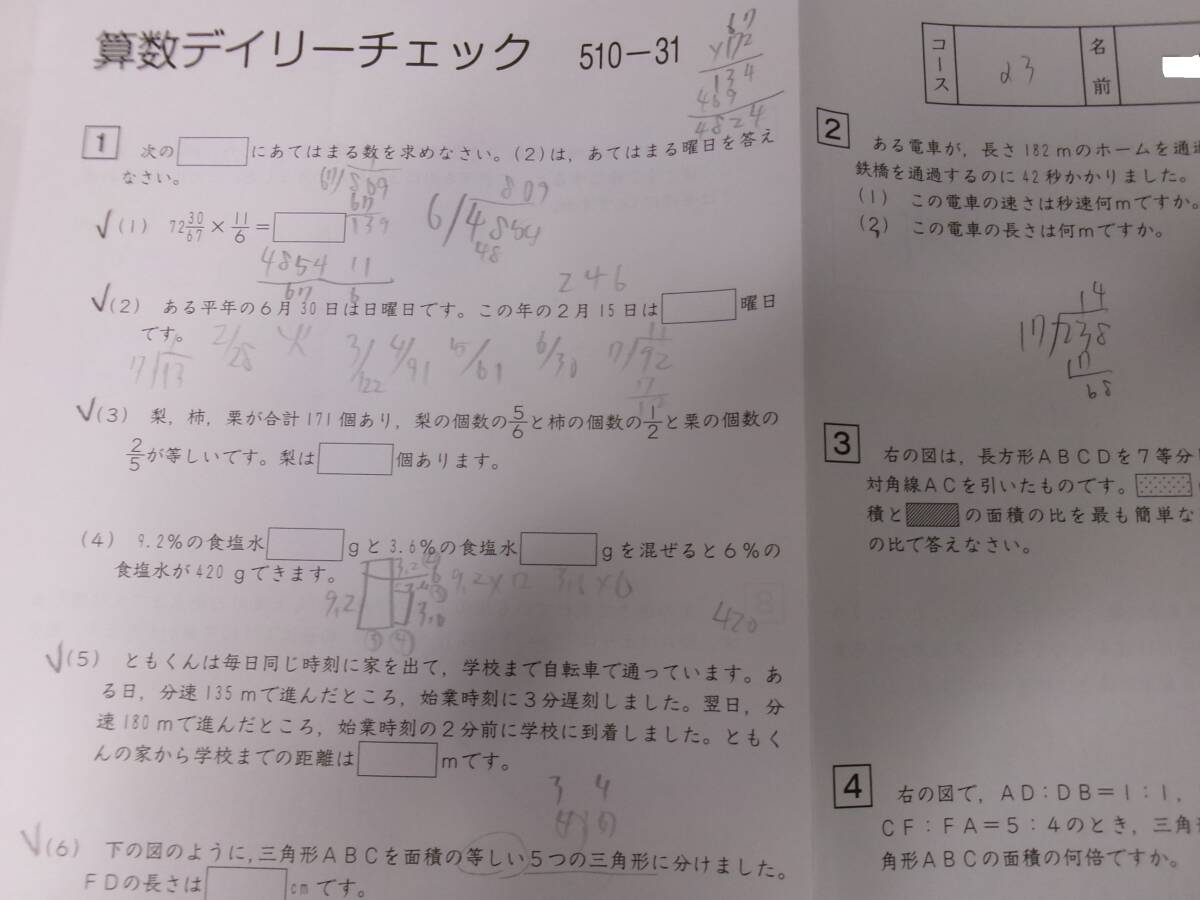 算数デイリーチェック 510-31
67
×172
134
469
4824
1 次の□にあてはまる数を求めなさい。(2)は,あてはまる曜日を答え
なさい。
67/869
67
139
809
6/4854
48
✓(1) 72 30/67 × 11/6 = □
4854 11
67 6
246
✓(2) ある平年の6月30日は日曜日です。この年の2月15日は□曜日
です。
7/13 2/28 火 3/122 4/91 5/61 6/30 7/92
✓(3) 梨,柿,栗が合計171個あり,梨の個数の5/6と柿の個数の1/2と栗の個数の
2/5が等しいです。梨は□個あります。
(4) 9.2%の食塩水□gと3.6%の食塩水□gを混ぜると6%の
食塩水が420gできます。
9,2
420
✓(5) ともくんは毎日同じ時刻に家を出て,学校まで自転車で通っています。あ
る日,分速135mで進んだところ,始業時刻に3分遅刻しました。翌日,分
速180mで進んだところ,始業時刻の2分前に学校に到着しました。ともく
んの家から学校までの距離は□mです。
3 4
✓(6) 下の図のように,三角形ABCを面積の等しい5つの三角形に分けました。
FDの長さは□cmです。
コース 23 名前
2 ある電車が,長さ182mのホームを通過
鉄橋を通過するのに42秒かかりました。
(1) この電車の速さは秒速何mですか。
(2) この電車の長さは何mですか。
14
17/238
17
68
3 右の図は,長方形ABCDを7等分し
対角線ACを引いたものです。
積と の面積の比を最も簡単な
の比で答えなさい。
4 右の図で,AD:DB=1:1,
CF:FA=5:4のとき,三角形
角形ABCの面積の何倍ですか。